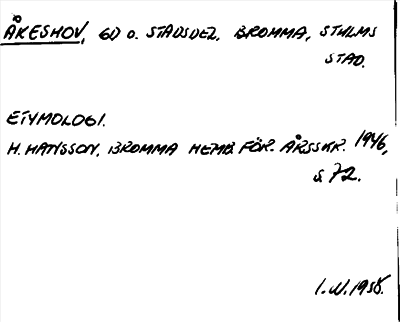 ÅKESHOV, GD O. STADSDEL, BROMMA, STHLMS
STAD.
ETYMOLOGI.
H. HANSSON, BROMMA HEMB. FÖR. ÅRSSKR. 1946,
S 72.
I. W. 1958.